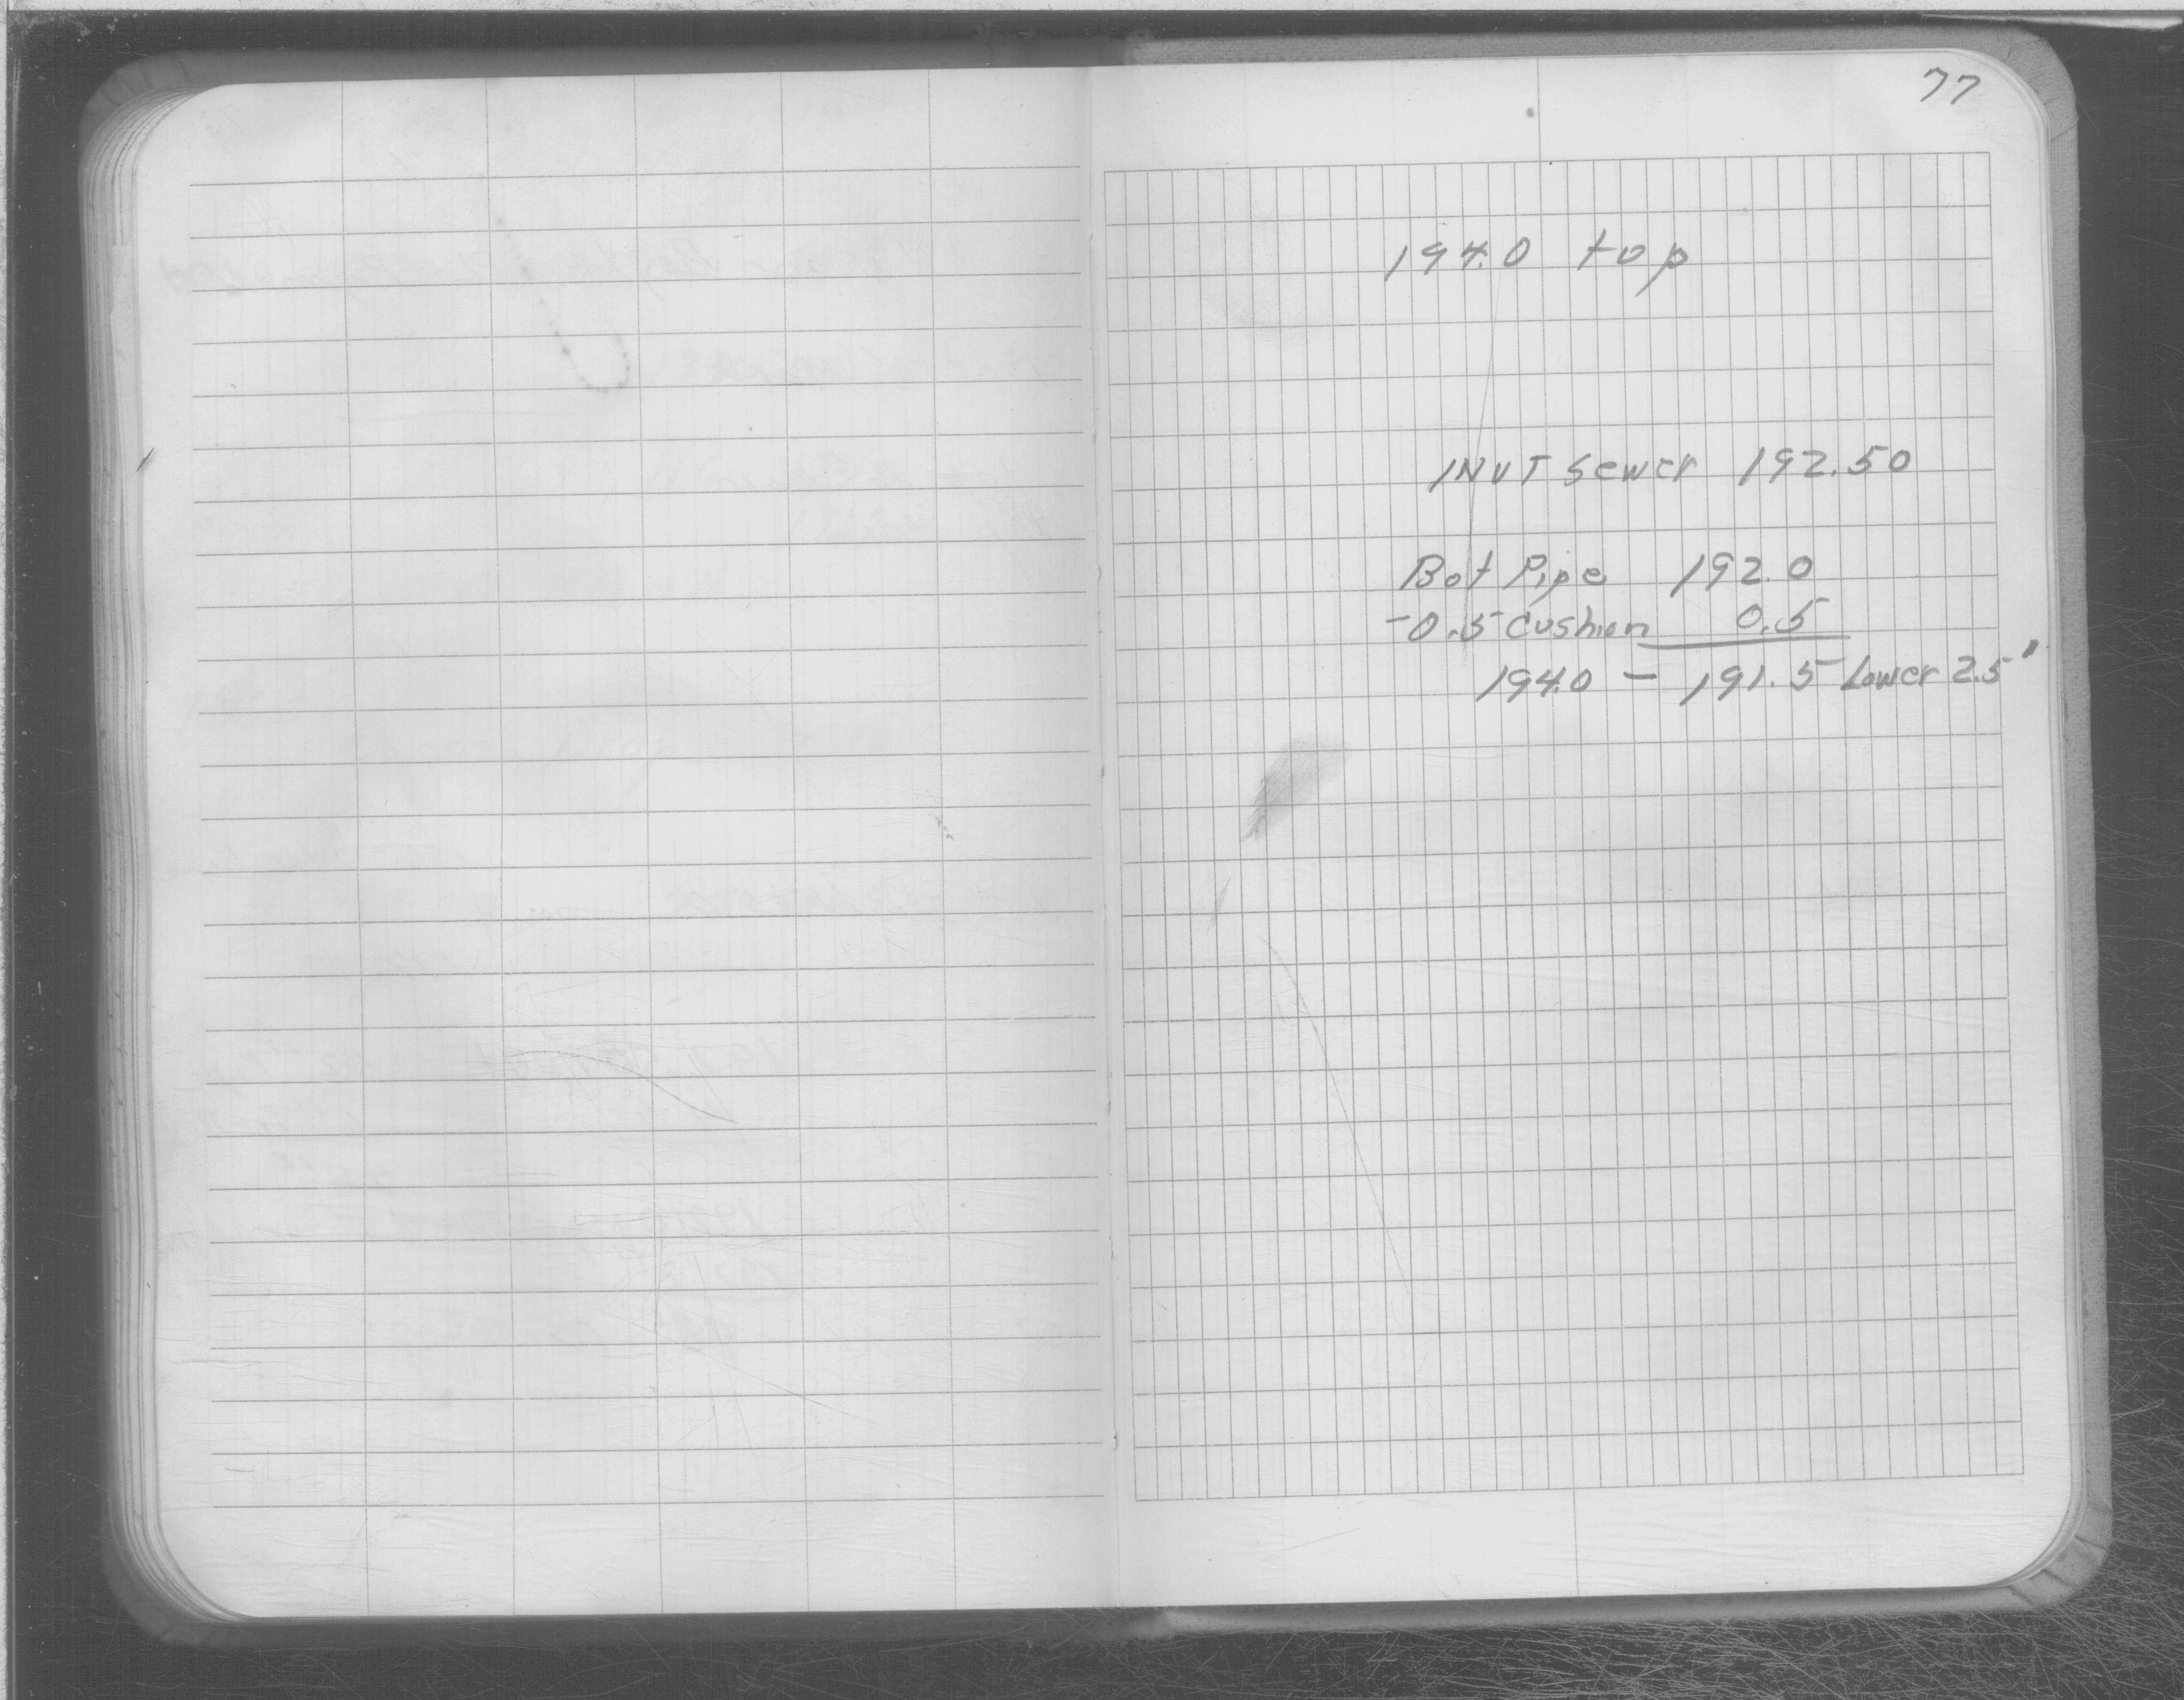 77
194.0 top
INVT Sewer 192.50
Bot Pipe 192.0
-0.5 Cushion 0.5
194.0 - 191.5 Lower 2.5'